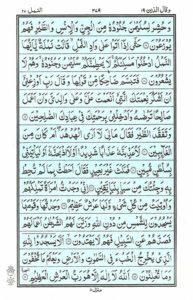 وقال الذين ١٩ النمل ٢٧
وَحُشِرَ لِسُلَيْمٰنَ جُنُوْدُهٗ مِنَ الْجِنِّ وَالْاِنْسِ وَالطَّيْرِ فَهُمْ
يُوْزَعُوْنَ حَتّٰۤى اِذَاۤ اَتَوْا عَلٰى وَادِ النَّمْلِ قَالَتْ نَمْلَةٌ يّٰۤاَيُّهَا
النَّمْلُ ادْخُلُوْا مَسٰكِنَكُمْ لَا يَحْطِمَنَّكُمْ سُلَيْمٰنُ وَجُنُوْدُهٗ وَهُمْ لَا
يَشْعُرُوْنَ فَتَبَسَّمَ ضَاحِكًا مِّنْ قَوْلِهَا وَقَالَ رَبِّ اَوْزِعْنِيْۤ
اَنْ اَشْكُرَ نِعْمَتَكَ الَّتِيْۤ اَنْعَمْتَ عَلَيَّ وَعَلٰى وَالِدَيَّ وَاَنْ اَعْمَلَ
صَالِحًا تَرْضٰىهُ وَاَدْخِلْنِيْ بِرَحْمَتِكَ فِيْ عِبَادِكَ الصّٰلِحِيْنَ
وَتَفَقَّدَ الطَّيْرَ فَقَالَ مَا لِيَ لَاۤ اَرَى الْهُدْهُدَ اَمْ كَانَ مِنَ
الْغَآئِبِيْنَ لَاُعَذِّبَنَّهٗ عَذَابًا شَدِيْدًا اَوْ لَاۡاَذْبَحَنَّهٗۤ اَوْ لَيَاْتِيَنِّيْ
بِسُلْطٰنٍ مُّبِيْنٍ فَمَكَثَ غَيْرَ بَعِيْدٍ فَقَالَ اَحَطْتُّ بِمَا لَمْ تُحِطْ
بِهٖ وَجِئْتُكَ مِنْ سَبَاٍ بِنَبَاٍ يَّقِيْنٍ اِنِّيْ وَجَدْتُّ امْرَاَةً تَمْلِكُهُمْ
وَاُوْتِيَتْ مِنْ كُلِّ شَيْءٍ وَّلَهَا عَرْشٌ عَظِيْمٌ وَجَدْتُّهَا وَقَوْمَهَا
يَسْجُدُوْنَ لِلشَّمْسِ مِنْ دُوْنِ اللّٰهِ وَزَيَّنَ لَهُمُ الشَّيْطٰنُ اَعْمَالَهُمْ
فَصَدَّهُمْ عَنِ السَّبِيْلِ فَهُمْ لَا يَهْتَدُوْنَ اَلَّا يَسْجُدُوْا لِلّٰهِ
الَّذِيْ يُخْرِجُ الْخَبْءَ فِي السَّمٰوٰتِ وَالْاَرْضِ وَيَعْلَمُ مَا تُخْفُوْنَ
وَمَا تُعْلِنُوْنَ اَللّٰهُ لَاۤ اِلٰهَ اِلَّا هُوَ رَبُّ الْعَرْشِ الْعَظِيْمِ